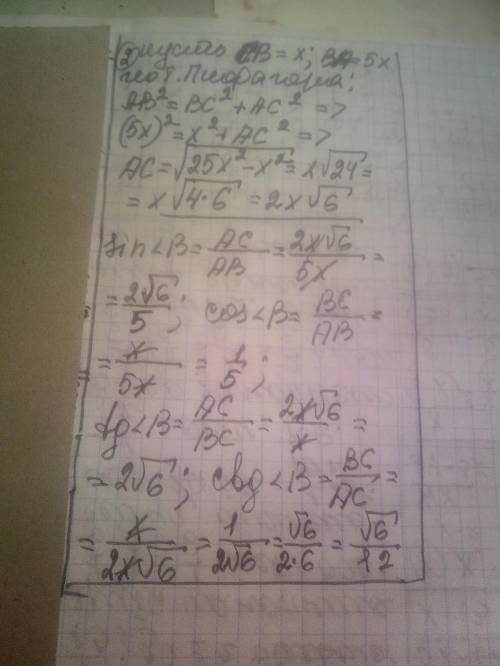 2) пусть CB = x; BA = 5x
по т. Пифагора:
AB² = BC² + AC² =>
(5x)² = x² + AC² =>
AC = √25x² - x² = x√24 =
= x√4·6 = 2x√6
sin∠B = AC/AB = 2x√6/5x =
= 2√6/5; cos∠B = BC/AB =
= x/5x = 1/5;
tg∠B = AC/BC = 2x√6/x =
= 2√6; ctg∠B = BC/AC =
= x/2x√6 = 1/2√6 = √6/2·6 = √6/12